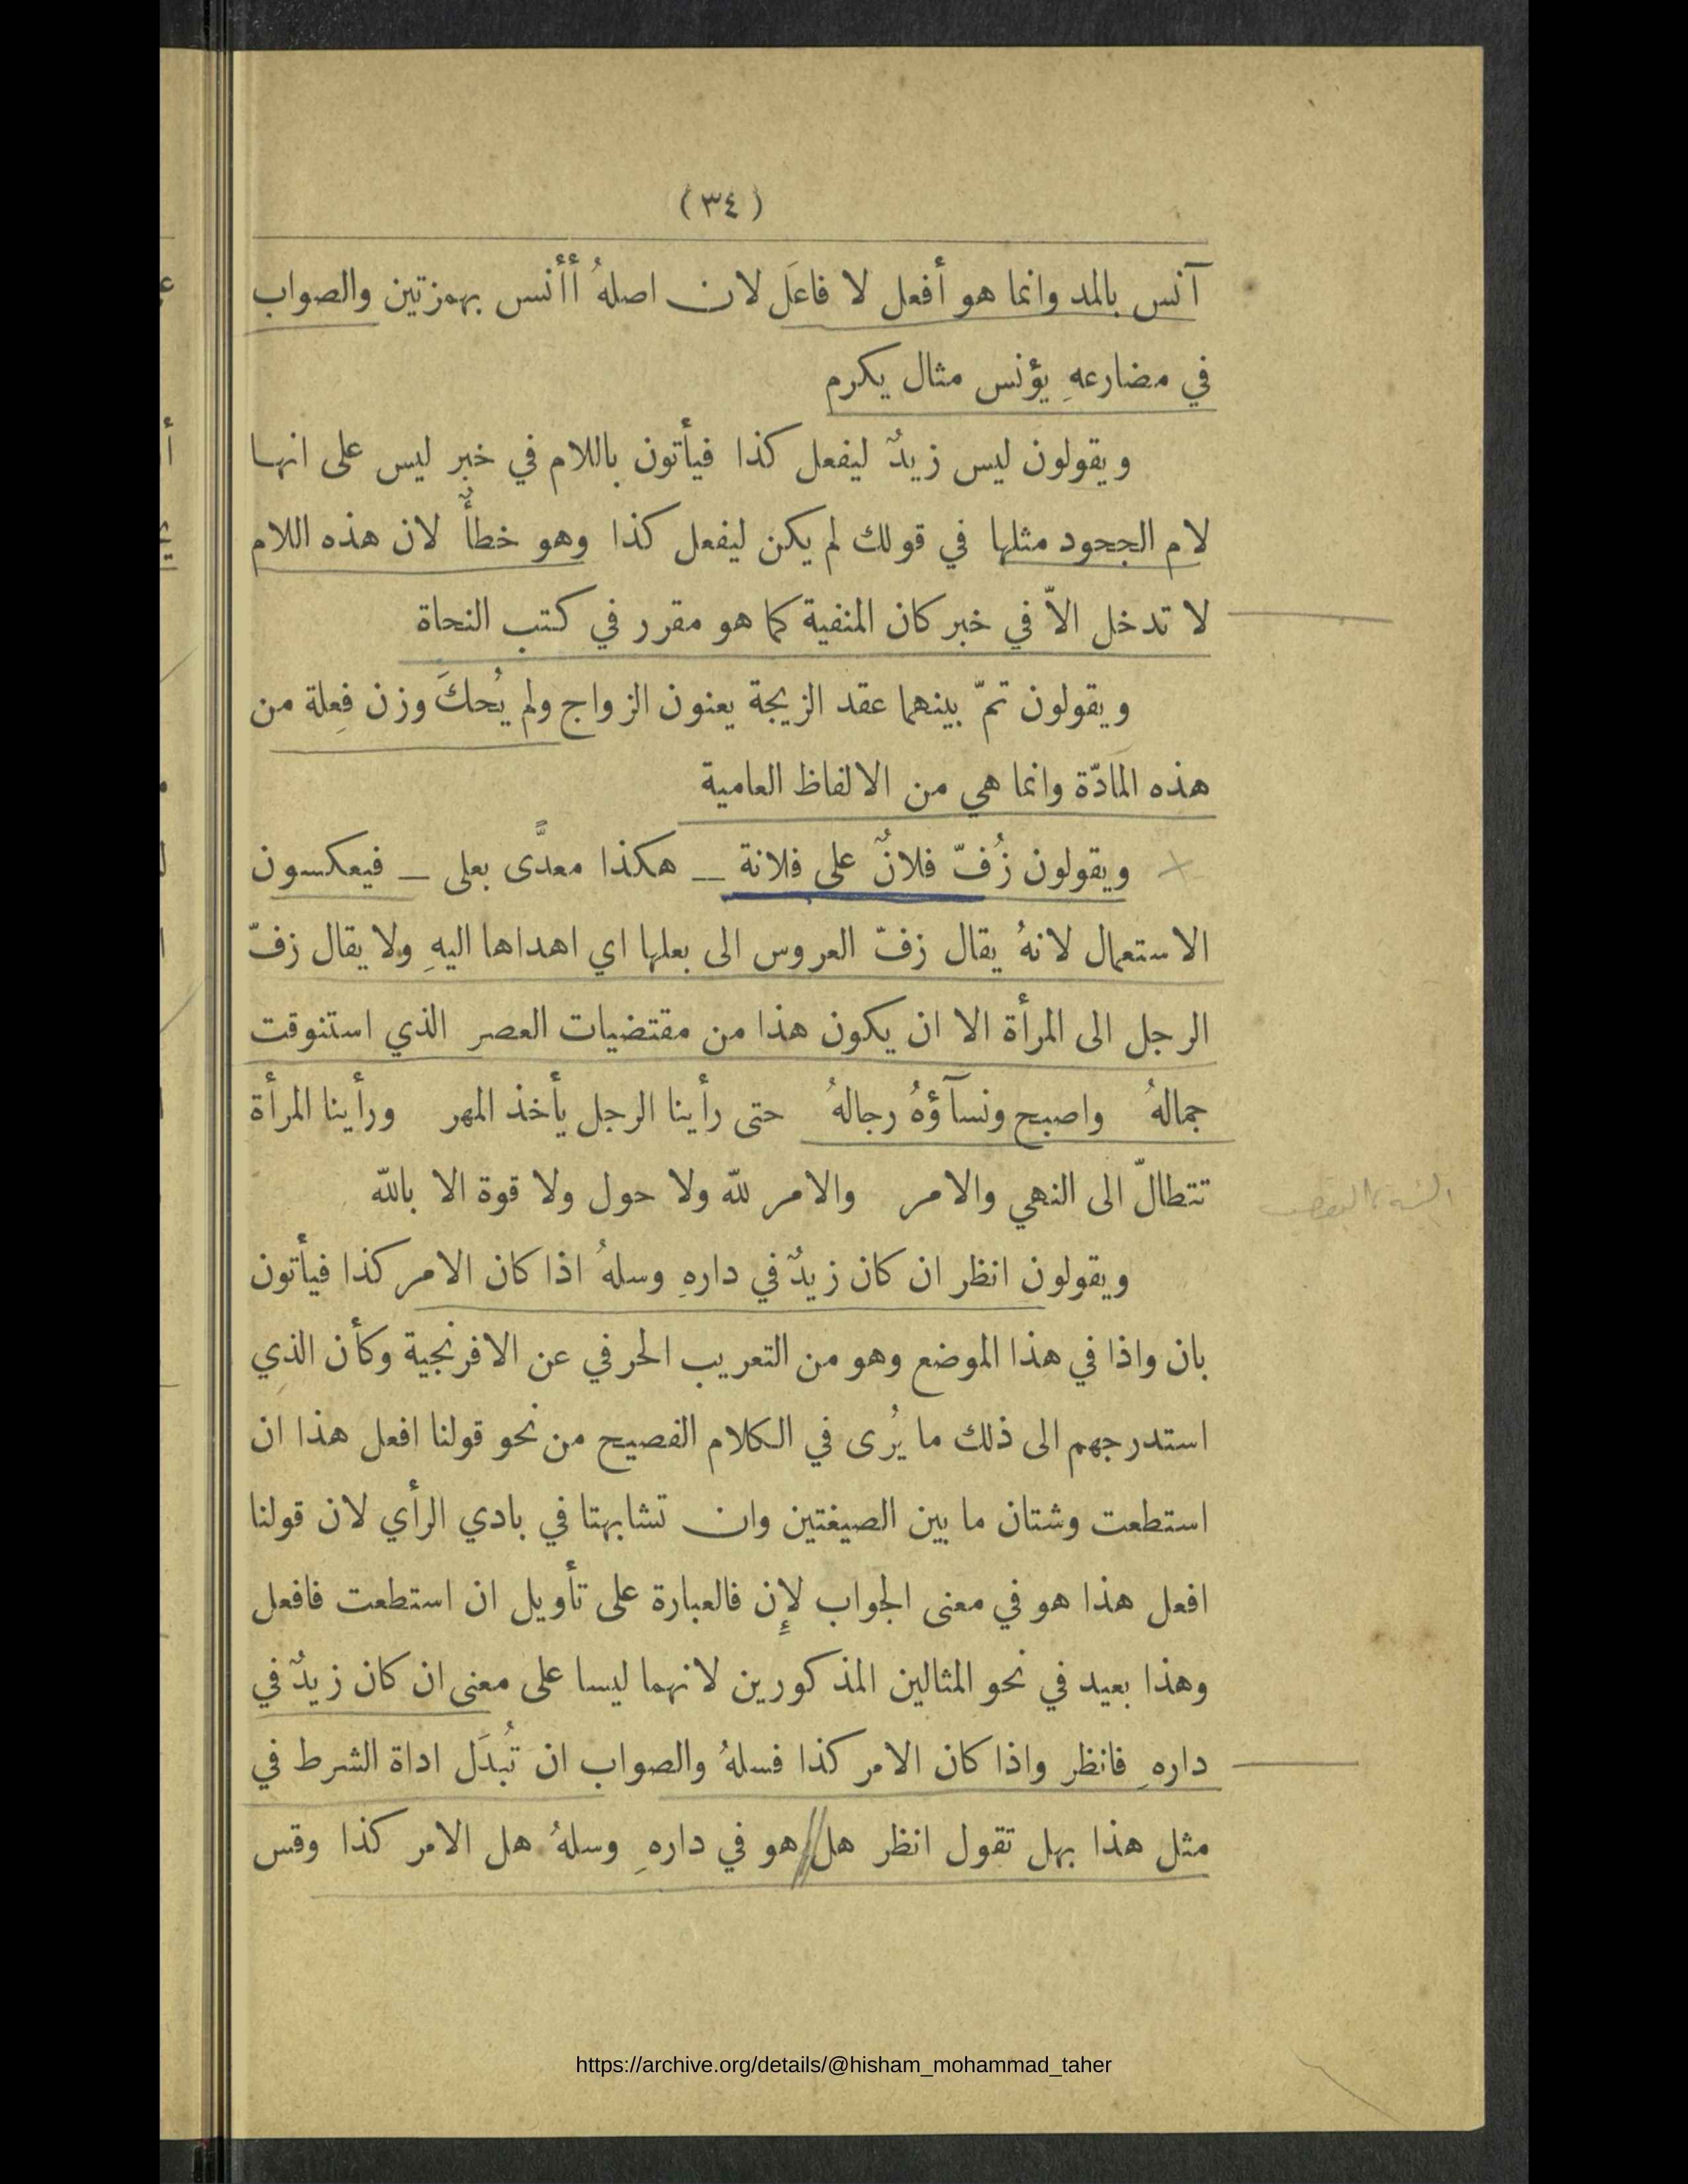 (٣٤)
آنس بالمد وانما هو أفعل لا فاعَل لان اصلهُ أأنس بهمزتين والصواب
في مضارعهِ يؤنس مثال يكرم
ويقولون ليس زيدٌ ليفعل كذا فيأتون باللام في خبر ليس على انها
لام الجحود مثلها في قولك لم يكن ليفعل كذا وهو خطأٌ لان هذه اللام
لا تدخل الاّ في خبر كان المنفية كما هو مقرر في كتب النحاة
ويقولون تمّ بينهما عقد الزيجة يعنون الزواج ولم يُحكَ وزن فِعلة من
هذه المادّة وانما هي من الالفاظ العامية
ويقولون زُفّ فلانٌ على فلانة _ هكذا معدًّى بعلى _ فيعكسون
الاستعمال لانهُ يقال زفّ العروس الى بعلها اي اهداها اليهِ ولا يقال زفّ
الرجل الى المرأة الا ان يكون هذا من مقتضيات العصر الذي استنوقت
جمالهُ واصبح ونسآؤهُ رجالهُ حتى رأينا الرجل يأخذ المهر ورأينا المرأة
تتطالّ الى النهي والامر والامر لله ولا حول ولا قوة الا بالله
ويقولون انظر ان كان زيدٌ في دارهِ وسلهُ اذا كان الامر كذا فيأتون
بان واذا في هذا الموضع وهو من التعريب الحرفي عن الافرنجية وكأن الذي
استدرجهم الى ذلك ما يُرى في الكلام الفصيح من نحو قولنا افعل هذا ان
استطعت وشتان ما بين الصيغتين وان تشابهتا في بادي الرأي لان قولنا
افعل هذا هو في معنى الجواب لإِن فالعبارة على تأويل ان استطعت فافعل
وهذا بعيد في نحو المثالين المذكورين لانهما ليسا على معنى ان كان زيدٌ في
دارهِ فانظر واذا كان الامر كذا فسلهُ والصواب ان تُبدَل اداة الشرط في
مثل هذا بهل تقول انظر هل هو في دارهِ وسلهُ هل الامر كذا وقس
https://archive.org/details/@hisham_mohammad_taher